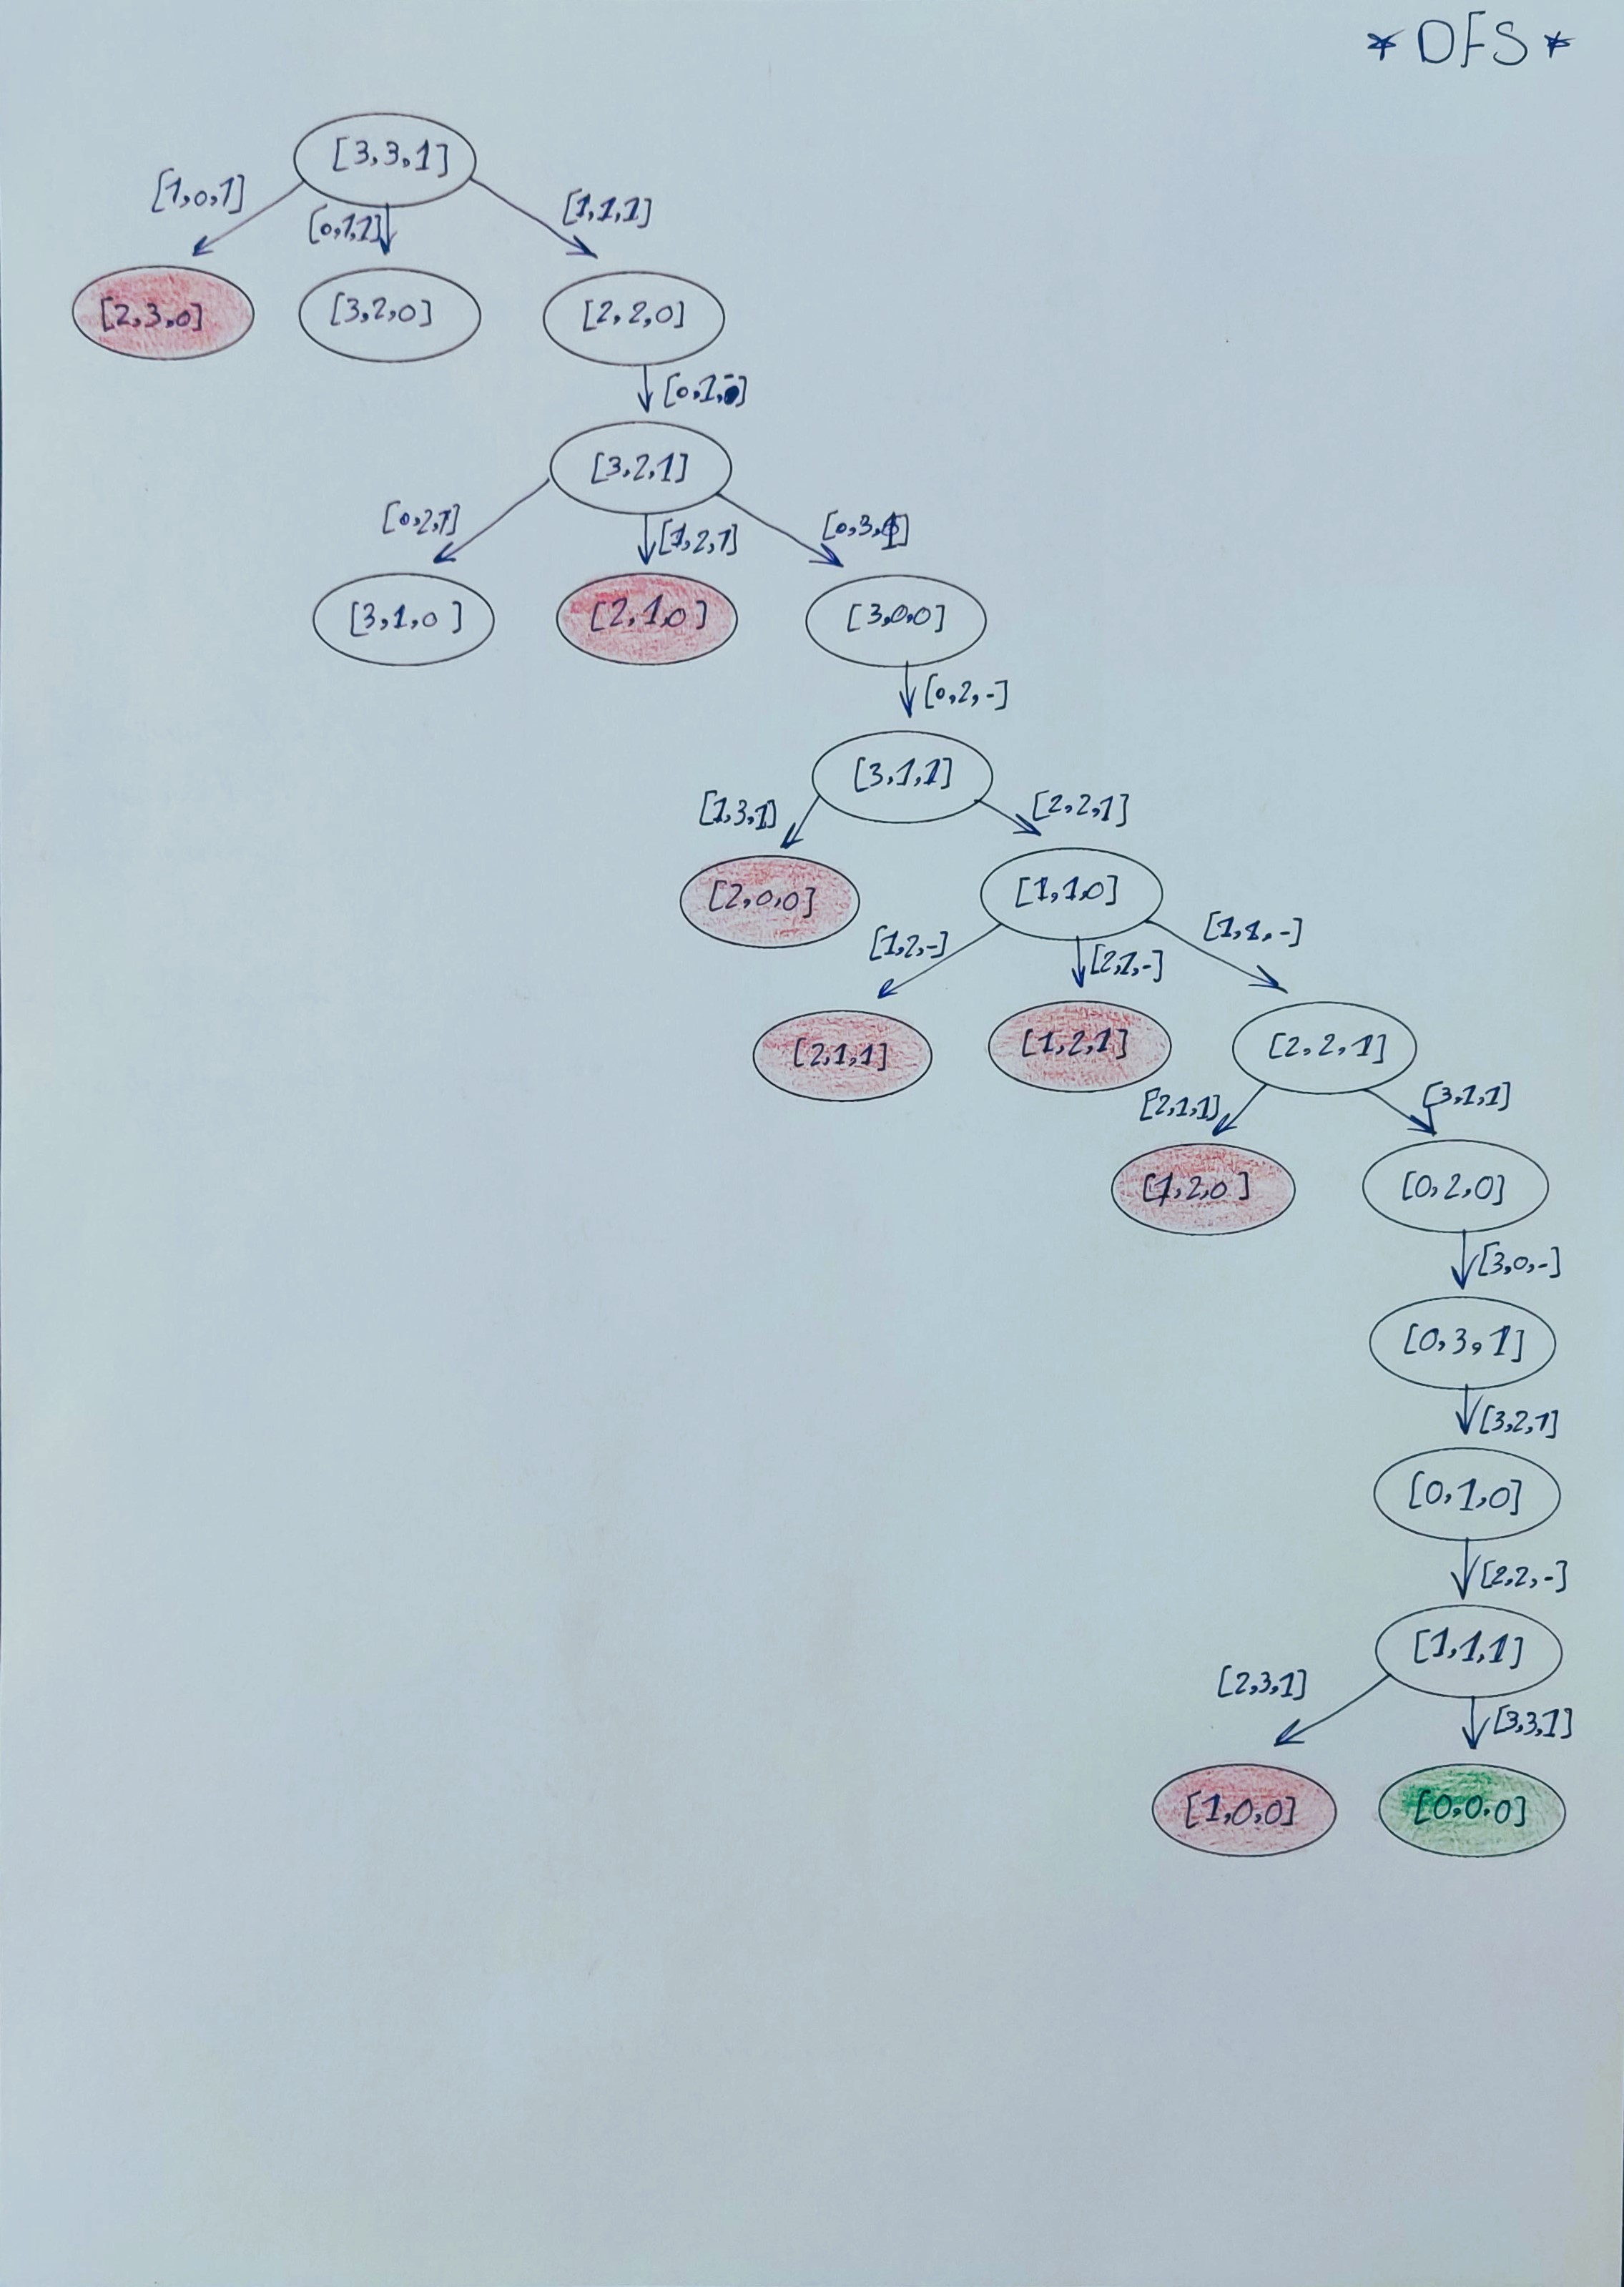 *DFS*
[3,3,1]
[1,0,1]
[0,1,1]
[1,1,1]
[2,3,0]
[3,2,0]
[2,2,0]
[3,2,1]
[0,2,1]
[1,2,1]
[3,1,0]
[2,1,0]
[3,0,0]
[0,2,-]
[3,1,1]
[1,3,1]
[2,2,1]
[2,0,0]
[1,1,0]
[1,2,-]
[2,1,-]
[1,1,-]
[2,1,1]
[1,2,1]
[2,2,1]
[2,1,1]
[3,1,1]
[1,2,0]
[0,2,0]
[3,0,-]
[0,3,1]
[3,2,1]
[0,1,0]
[2,2,-]
[1,1,1]
[2,3,1]
[3,3,1]
[1,0,0]
[0,0,0]